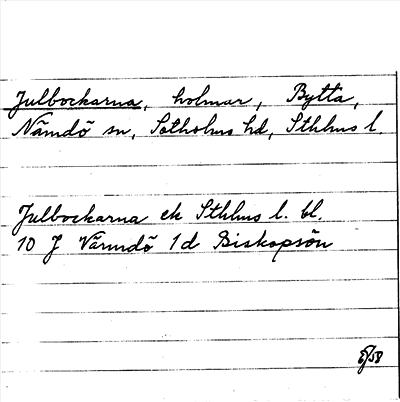 Julbockarna, holmar, Bytta,
Nämdö sn, Sotholms hd, Sthlms l.
Julbockarna ek Sthlms l. bl.
10 J Värmdö 1d Biskopsön